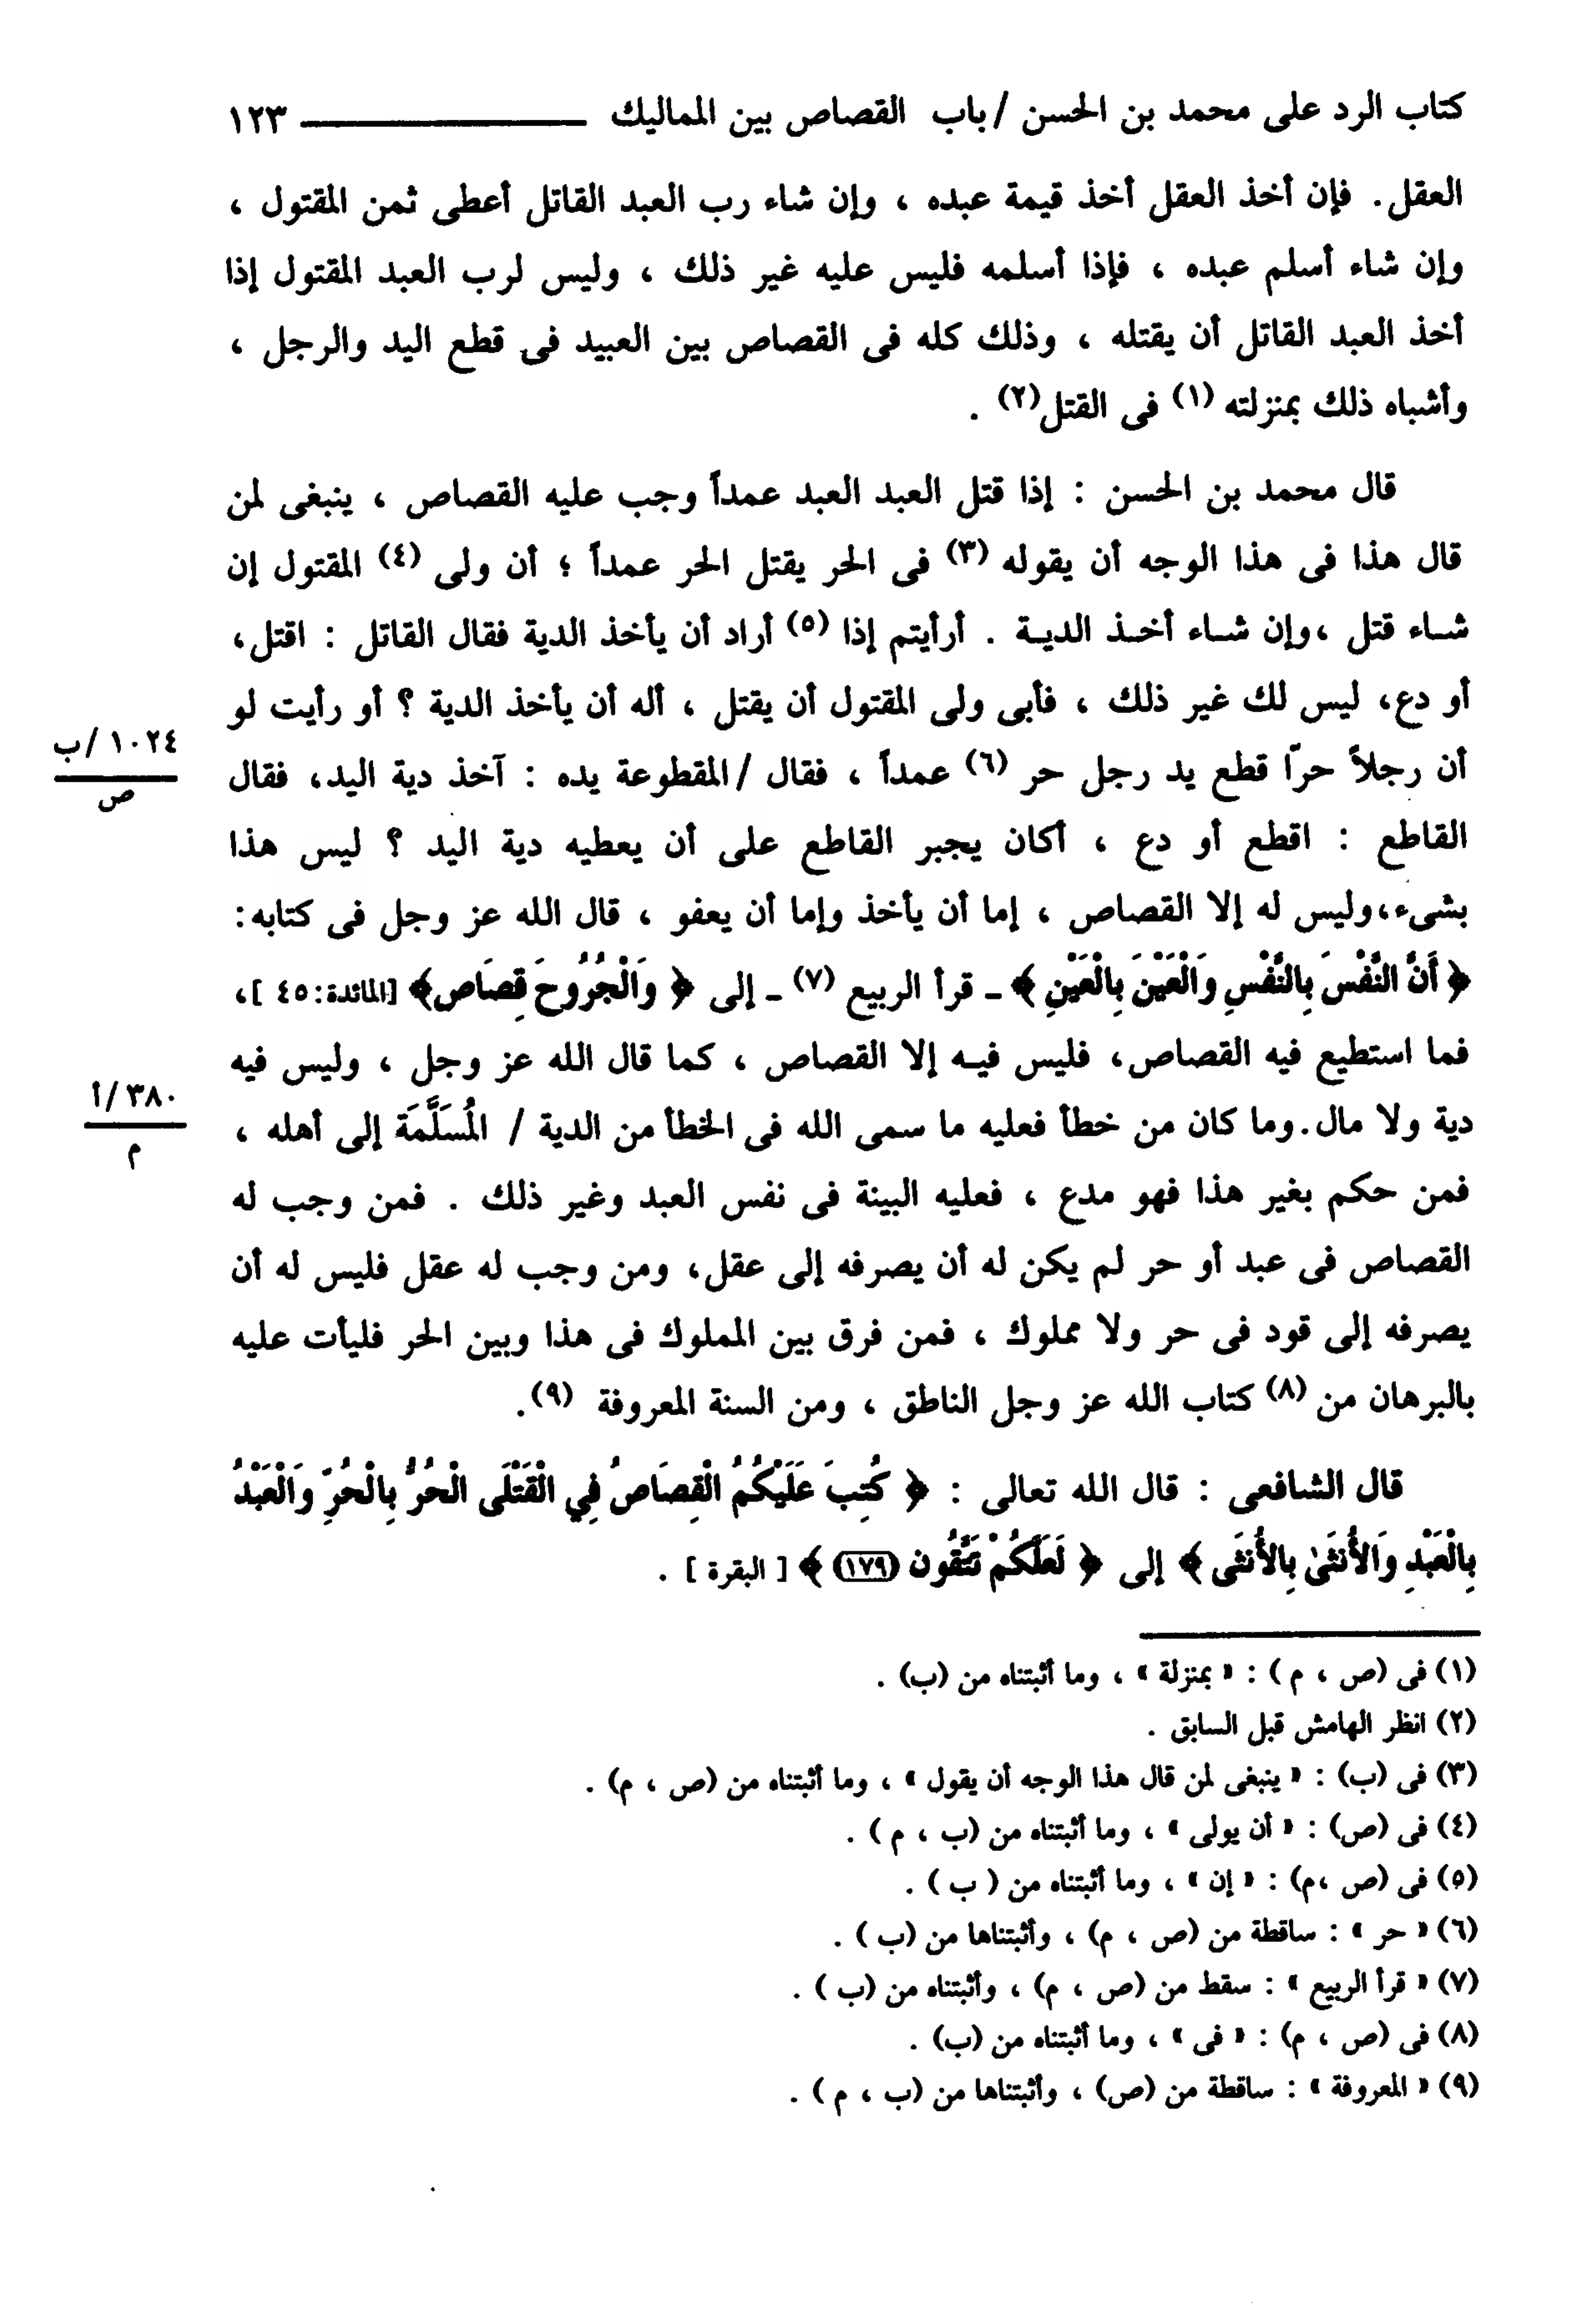 كتاب الرد على محمد بن الحسن / باب القصاص بين المماليك ـــــــــــــ ١٢٣
العقل. فإن أخذ العقل أخذ قيمة عبده ، وإن شاء رب العبد القاتل أعطى ثمن المقتول ،
وإن شاء أسلم عبده ، فإذا أسلمه فليس عليه غير ذلك ، وليس لرب العبد المقتول إذا
أخذ العبد القاتل أن يقتله ، وذلك كله فى القصاص بين العبيد فى قطع اليد والرجل ،
وأشباه ذلك بمنزلته (١) فى القتل(٢) .
قال محمد بن الحسن : إذا قتل العبد العبد عمداً وجب عليه القصاص ، ينبغى لمن
قال هذا فى هذا الوجه أن يقوله (٣) فى الحر يقتل الحر عمداً ؛ أن ولى (٤) المقتول إن
شاء قتل ،وإن شاء أخذ الدية . أرأيتم إذا (٥) أراد أن يأخذ الدية فقال القاتل : اقتل،
أو دع، ليس لك غير ذلك ، فأبى ولى المقتول أن يقتل ، أله أن يأخذ الدية ؟ أو رأيت لو
١٠٢٤ /ب
ص
أن رجلاً حرّا قطع يد رجل حر (٦) عمداً ، فقال /المقطوعة يده : آخذ دية اليد، فقال
القاطع : اقطع أو دع ، أكان يجبر القاطع على أن يعطيه دية اليد ؟ ليس هذا
بشىء،وليس له إلا القصاص ، إما أن يأخذ وإما أن يعفو ، قال الله عز وجل فى كتابه:
﴿ أَنَّ النَّفْسَ بِالنَّفْسِ وَالْعَيْنَ بِالْعَيْنِ ﴾ ـ قرأ الربيع (٧) ـ إلى ﴿ وَالْجُرُوحَ قِصَاص﴾ [المائدة: ٤٥ ]،
فما استطيع فيه القصاص، فليس فيه إلا القصاص ، كما قال الله عز وجل ، وليس فيه
٣٨٠ /أ
م
دية ولا مال.وما كان من خطأ فعليه ما سمى الله فى الخطأ من الدية / المُسَلَّمَة إلى أهله ،
فمن حكم بغير هذا فهو مدع ، فعليه البينة فى نفس العبد وغير ذلك . فمن وجب له
القصاص فى عبد أو حر لم يكن له أن يصرفه إلى عقل، ومن وجب له عقل فليس له أن
يصرفه إلى قود فى حر ولا مملوك ، فمن فرق بين المملوك فى هذا وبين الحر فليأت عليه
بالبرهان من (٨) كتاب الله عز وجل الناطق ، ومن السنة المعروفة (٩).
قال الشافعى : قال الله تعالى : ﴿ كُتِبَ عَلَيْكُمُ الْقِصَاصُ فِي الْقَتْلَى الْحُرُّ بِالْحُرِّ وَالْعَبْدُ
بِالْعَبْدِ وَالأُنثَىٰ بِالأُنثَى ﴾ إلى ﴿ لَعَلَّكُمْ تَتَّقُون (١٧٩) ﴾ [ البقرة ] .
(١) فى (ص ، م ) : « بمنزلة » ، وما أثبتناه من (ب) .
(٢) انظر الهامش قبل السابق .
(٣) فى (ب) : « ينبغى لمن قال هذا الوجه أن يقول » ، وما أثبتناه من (ص ، م) .
(٤) فى (ص) : « أن يولى » ، وما أثبتناه من (ب ، م ) .
(٥) فى (ص ،م) : « إن » ، وما أثبتناه من ( ب ) .
(٦) « حر » : ساقطة من (ص ، م) ، وأثبتناها من (ب ) .
(٧) « قرأ الربيع » : سقط من (ص ، م) ، وأثبتناه من (ب ) .
(٨) فى (ص ، م) : « فى » ، وما أثبتناه من (ب) .
(٩) « المعروفة » : ساقطة من (ص) ، وأثبتناها من (ب ، م ) .